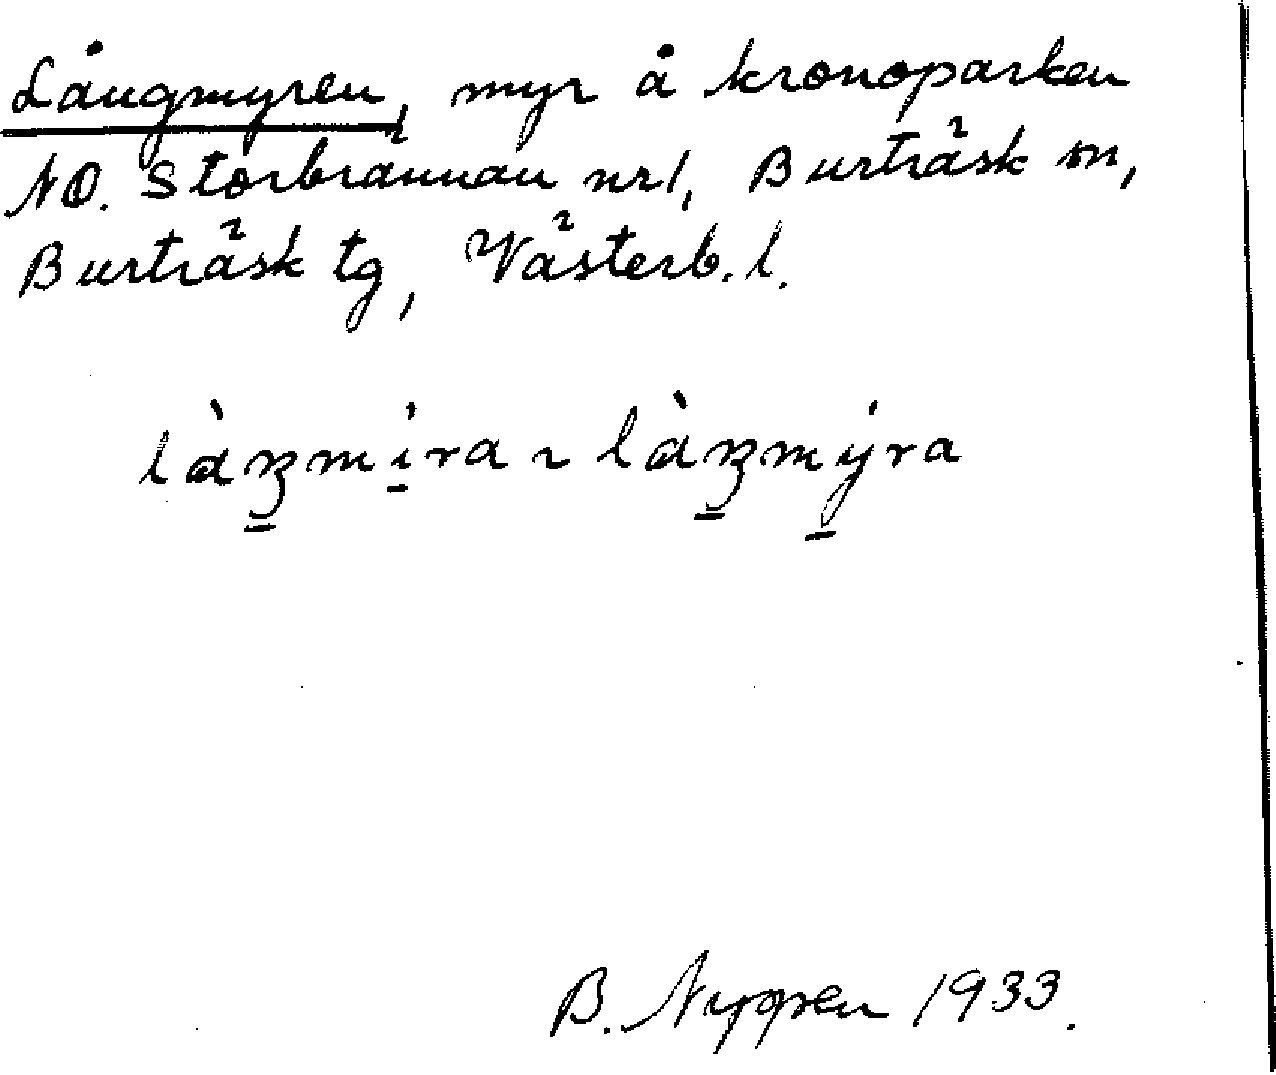 Långmyren, myr å kronoparken
NO. Storbrännan nr 1, Burträsk sn,
Burträsk tg, Västerb. l.
làŋmı̱́ra ~ làŋmý̱ra
B. Nyppen 1933.